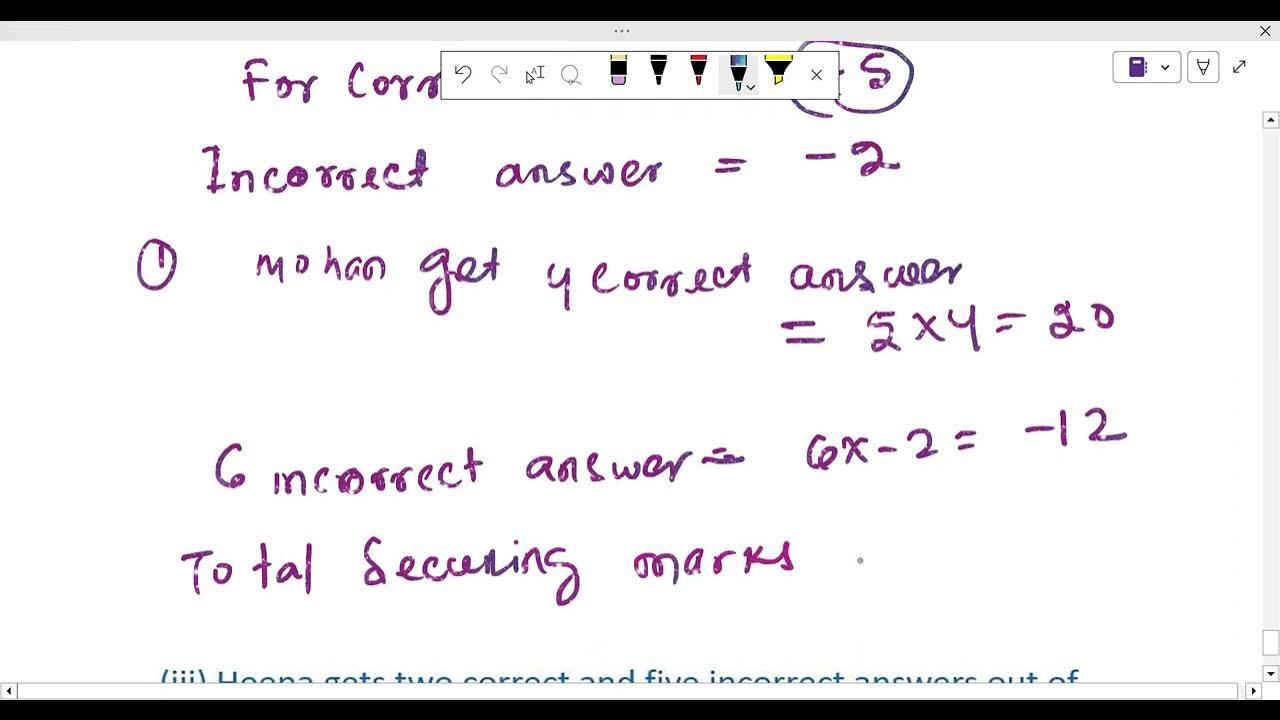 For Corr 5
Incorrect answer = -2
① mohan get 4 correct answer
= 5 x 4 = 20
6 incorrect answer = 6x-2 = -12
Total Securing marks
(iii) Heena gets two correct and five incorrect answers out of